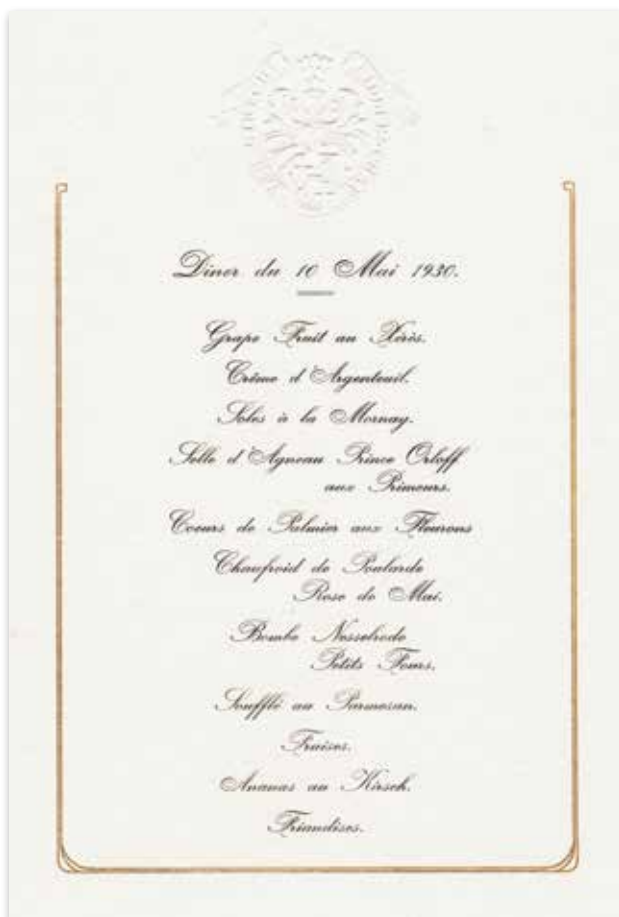 Dîner du 10 Mai 1930.
Grape Fruit au Xérès.
Crème d'Argenteuil.
Soles à la Mornay.
Selle d'Agneau Prince Orloff
aux Primeurs.
Coeurs de Palmier aux Fleurons
Chaufroid de Poularde
Rose de Mai.
Bombe Nesselrode
Petits Fours.
Soufflé au Parmesan.
Fraises.
Ananas au Kirsch.
Friandises.